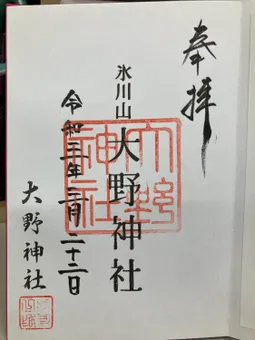 奉拝
氷川山
大野神社
大野神社
令和三年二月二十二日
大野神社